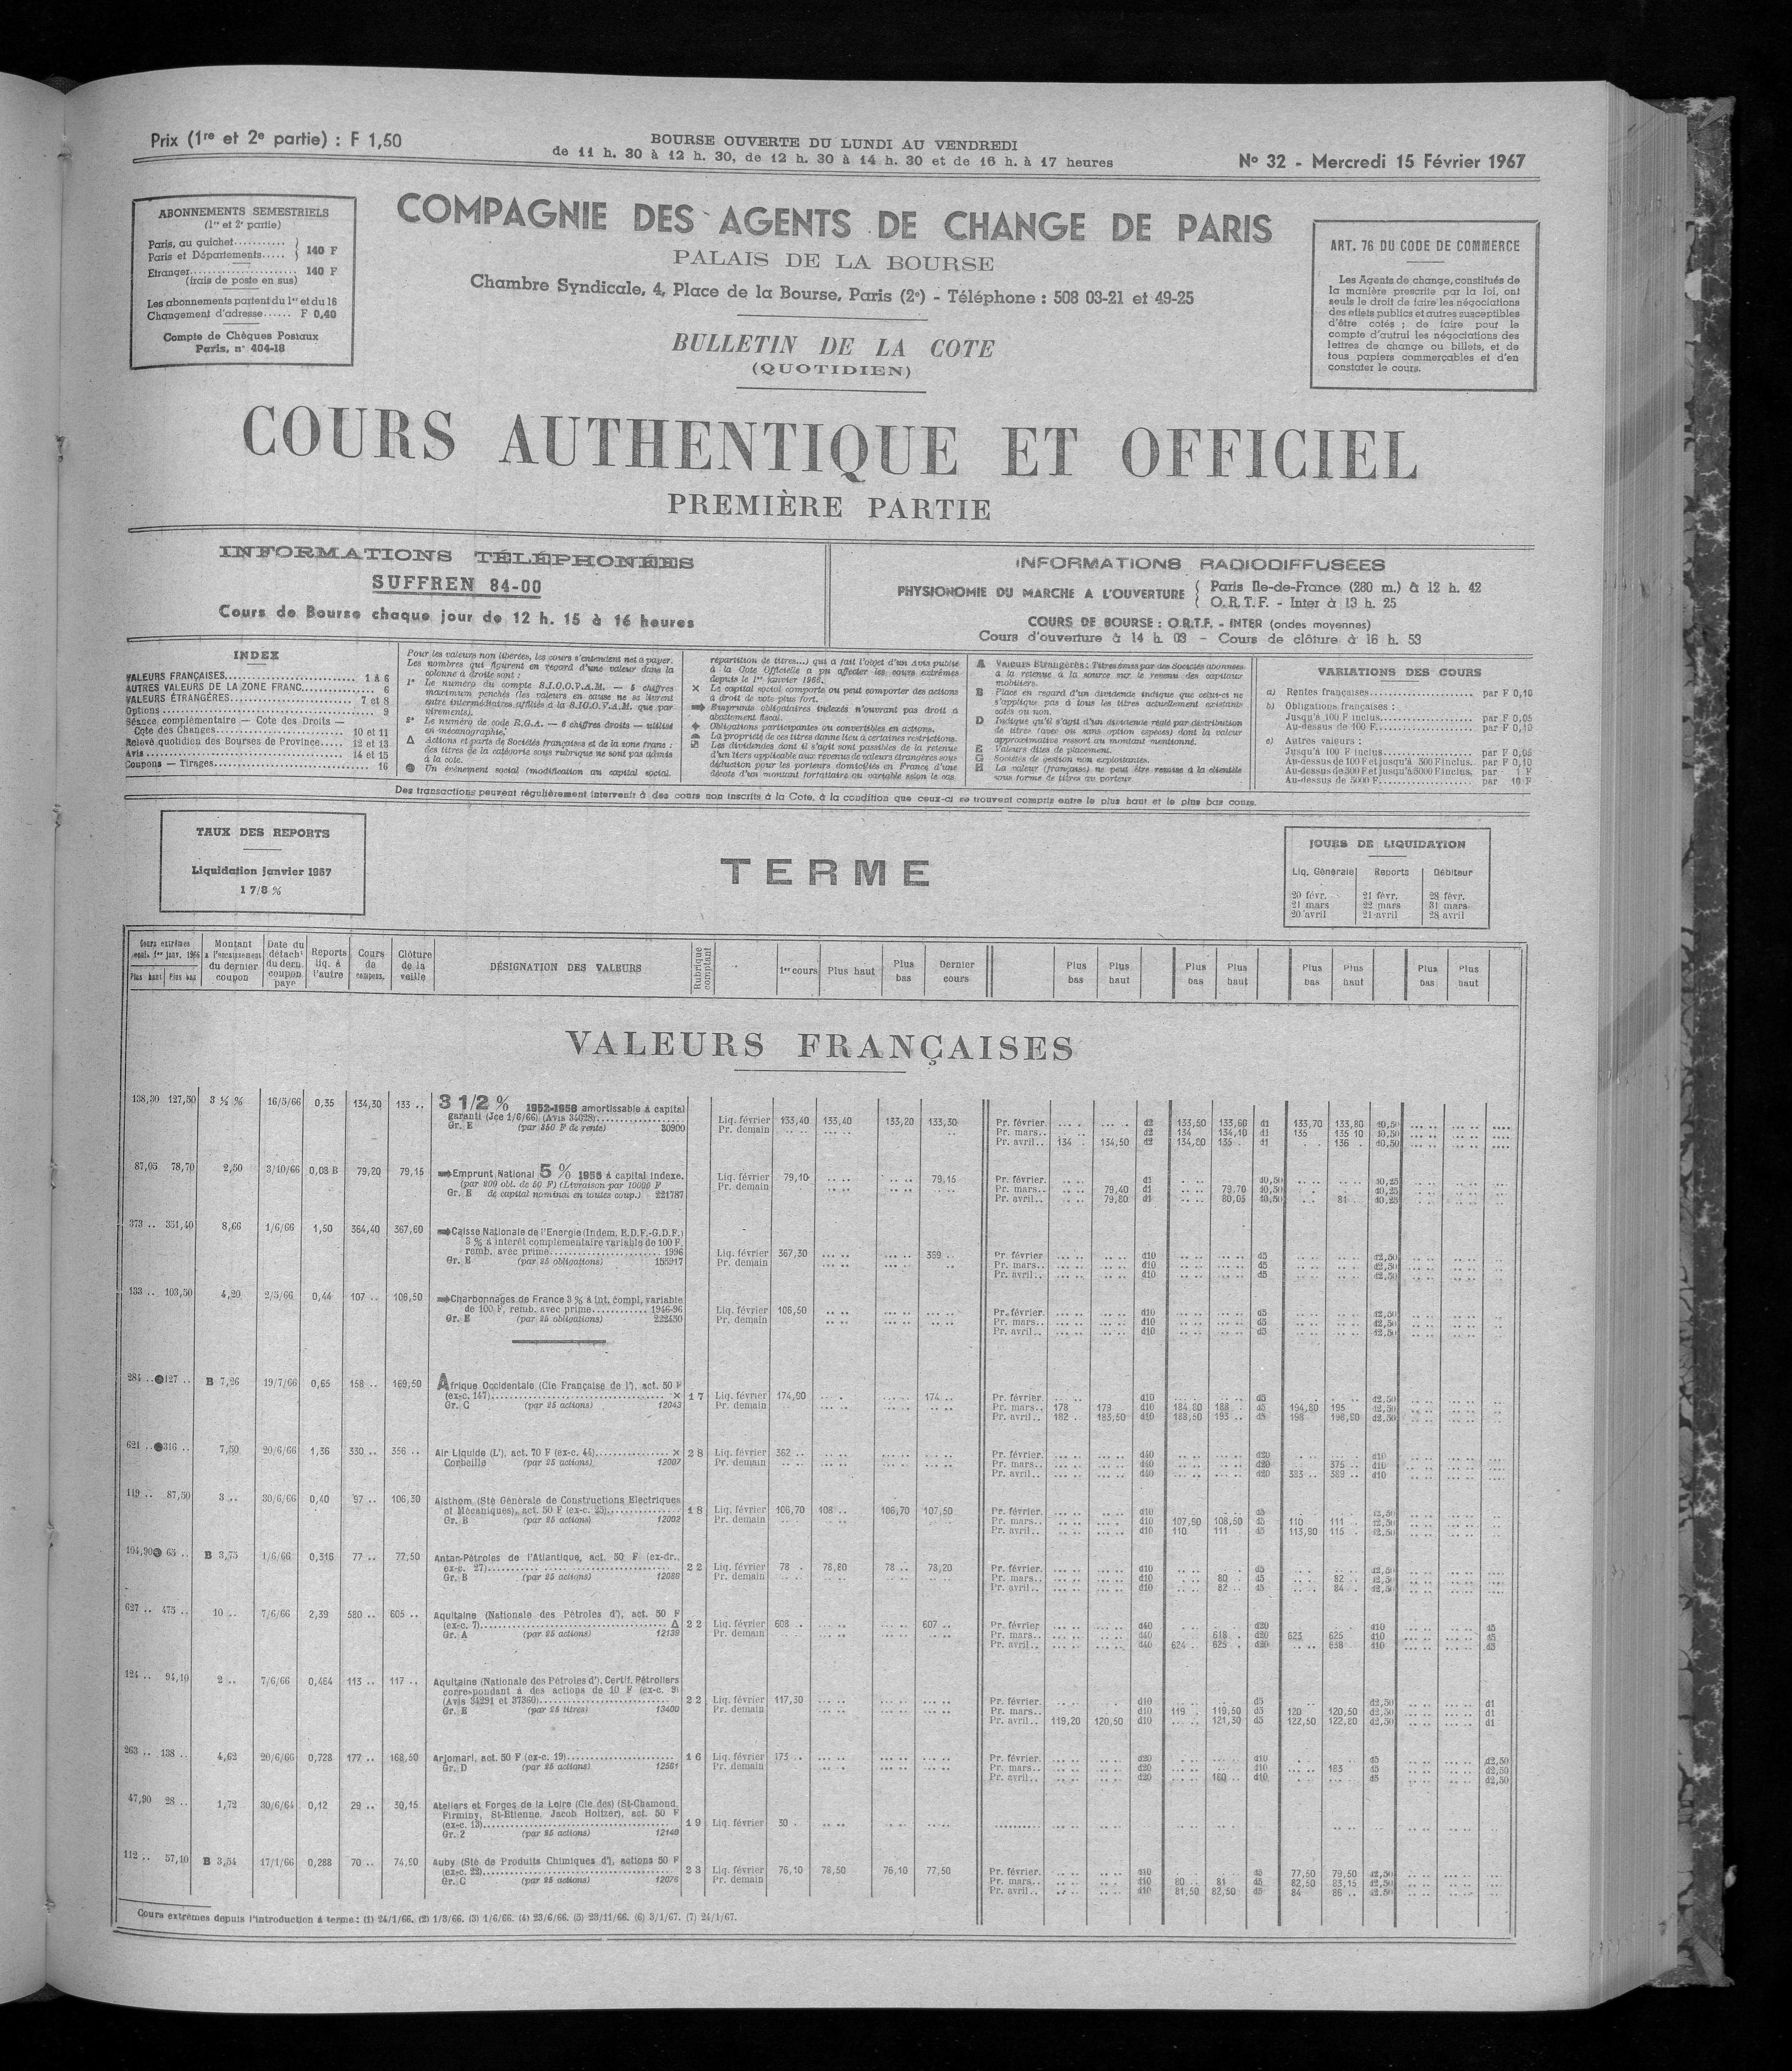 Prix (1re et 2e partie) : F 1,50
BOURSE OUVERTE DU LUNDI AU VENDREDI
de 11 h. 30 à 12 h. 30, de 12 h. 30 à 14 h. 30 et de 16 h. à 17 heures
No 32 - Mercredi 15 Février 1967
ABONNEMENTS SEMESTRIELS
(1re et 2e partie)
Paris, au guichet...........
Paris et Départements.....
140 F
Etranger...................... 140 F
(frais de poste en sus)
Les abonnements partent du 1er et du 16
Changement d'adresse...... F 0,40
Compte de Chèques Postaux
Paris, n° 404-18
COMPAGNIE DES AGENTS DE CHANGE DE PARIS
PALAIS DE LA BOURSE
Chambre Syndicale, 4, Place de la Bourse, Paris (2e) - Téléphone : 508 03-21 et 49-25
BULLETIN DE LA COTE
(QUOTIDIEN)
ART. 76 DU CODE DE COMMERCE
Les Agents de change, constitués de
la manière prescrite par la loi, ont
seuls le droit de faire les négociations
des effets publics et autres susceptibles
d'être cotés ; de faire pour le
compte d'autrui les négociations des
lettres de change ou billets, et de
tous papiers commerçables et d'en
constater le cours.
COURS AUTHENTIQUE ET OFFICIEL
PREMIÈRE PARTIE
INFORMATIONS TÉLÉPHONÉES
SUFFREN 84-00
Cours de Bourse chaque jour de 12 h. 15 à 16 heures
INFORMATIONS RADIODIFFUSEES
PHYSIONOMIE DU MARCHE A L'OUVERTURE
Paris Ile-de-France (280 m.) à 12 h. 42
O.R.T.F. - Inter à 13 h. 25
COURS DE BOURSE : O.R.T.F. - INTER (ondes moyennes)
Cours d'ouverture à 14 h. 03 - Cours de clôture à 16 h. 53
INDEX
VALEURS FRANÇAISES.......... 1 à 6
AUTRES VALEURS DE LA ZONE FRANC.......... 6
VALEURS ÉTRANGÈRES.......... 7 et 8
Options.......... 9
Séance complémentaire — Cote des Droits —
Cote des Changes.......... 10 et 11
Relevé quotidien des Bourses de Province..... 12 et 13
Avis.......... 14 et 15
Coupons — Tirages.......... 16
Pour les valeurs non libérées, les cours s'entendent net à payer.
Les nombres qui figurent en regard d'une valeur dans la
colonne à droite sont :
1° Le numéro du compte S.I.C.O.V.A.M. — 5 chiffres
maximum penchés (les valeurs en cause ne se livrent
entre intermédiaires affiliés à la S.I.C.O.V.A.M. que par
virements).
2° Le numéro de code R.G.A. — 6 chiffres droits — utilisé
en mécanographie.
Δ Actions et parts de Sociétés françaises et de la zone franc :
des titres de la catégorie sous rubrique ne sont pas admis
à la cote.
Un événement social (modification au capital social,
répartition de titres...) qui a fait l'objet d'un Avis publié
à la Cote Officielle a pu affecter les cours extrêmes
depuis le 1er janvier 1966.
× Le capital social comporte ou peut comporter des actions
à droit de vote plus fort.
Emprunts obligataires indexés n'ouvrant pas droit à
abattement fiscal.
Obligations participantes ou convertibles en actions.
La propriété de ces titres donne lieu à certaines restrictions.
Les dividendes dont il s'agit sont passibles de la retenue
d'un tiers applicable aux revenus de valeurs étrangères sous
déduction pour les porteurs domiciliés en France, d'une
décote d'un montant forfaitaire ou variable selon le cas.
A Valeurs Étrangères : Titres émis par des Sociétés abonnées
à la retenue à la source sur le revenu des capitaux
mobiliers.
B Place en regard d'un dividende indique que celui-ci ne
s'applique pas à tous les titres actuellement existants
cotés ou non.
D Indique qu'il s'agit d'un dividende réglé par distribution
de titres (avec ou sans option espèces) dont la valeur
approximative ressort au montant mentionné.
E Valeurs dites de placement.
G Sociétés de gestion non exploitantes.
H La valeur (française) ne peut être remise à la clientèle
sous forme de titres au porteur.
VARIATIONS DES COURS
a) Rentes françaises.......... par F 0,10
b) Obligations françaises :
Jusqu'à 100 F inclus.......... par F 0,05
Au-dessus de 100 F.......... par F 0,10
c) Autres valeurs :
Jusqu'à 100 F inclus.......... par F 0,05
Au-dessus de 100 F et jusqu'à 500 F inclus. par F 0,10
Au-dessus de 500 F et jusqu'à 5000 F inclus. par 1 F
Au-dessus de 5000 F.......... par 10 F
Des transactions peuvent régulièrement intervenir à des cours non inscrits à la Cote, à la condition que ceux-ci se trouvent compris entre le plus haut et le plus bas cours.
TAUX DES REPORTS
Liquidation janvier 1967
1 7/8 %
TERME
JOURS DE LIQUIDATION
Liq. Générale Reports Débiteur
20 févr. 21 févr. 28 févr.
21 mars 22 mars 31 mars
20 avril 21 avril 28 avril
Cours extrêmes 1er janv. 1966 Plus haut Plus bas
Montant à l'encaissement du dernier coupon
Date du détacht du dern. coupon payé
Reports liq. à l'autre
Cours de compens.
Clôture de la veille
DÉSIGNATION DES VALEURS
Rubrique comptant
1er cours Plus haut Plus bas Dernier cours
Plus bas Plus haut Plus bas Plus haut Plus bas Plus haut Plus bas Plus haut
VALEURS FRANÇAISES
138,30 127,50 3 ½ % 16/5/66 0,35 134,30 133 .. 3 1/2 % 1952-1958 amortissable à capital
garanti (Jce 1/6/66) (Avis 34628).......... Liq. février 133,40 133,40 133,20 133,30 Pr. février. d2 133,50 133,60 d1 133,70 133,80 d0,50
Gr. E (par 350 F de rente) 30900 Pr. demain Pr. mars.. d2 134 134,10 d1 135 135 10 d0,50
Pr. avril.. 134 . 134,50 d2 134,80 135 . d1 136 . d0,50
87,05 78,70 2,50 3/10/66 0,08 B 79,20 79,15 Emprunt National 5 % 1956 à capital indexé.
(par 200 obl. de 50 F) (Livraison par 10000 F Liq. février 79,10 79,15 Pr. février. d1 d0,50 d0,25
Gr. E de capital nominal en toutes coup.) 221787 Pr. demain Pr. mars.. 79,40 d1 79,70 d0,50 d0,25
Pr. avril.. 79,80 d1 80,05 d0,50 81 . d0,25
373 .. 351,40 8,66 1/6/66 1,50 364,40 367,60 Caisse Nationale de l'Energie (Indem. E.D.F.-G.D.F.)
3 % à intérêt complémentaire variable de 100 F,
remb. avec prime.......... 1996 Liq. février 367,30 369 .. Pr. février d10 d5 d2,50
Gr. E (par 25 obligations) 155917 Pr. demain Pr. mars.. d10 d5 d2,50
Pr. avril.. d10 d5 d2,50
133 .. 103,50 4,20 2/5/66 0,44 107 .. 106,50 Charbonnages de France 3 % à int. compl. variable
de 100 F, remb. avec prime.......... 1946-96 Liq. février 106,50 Pr. février. d10 d5 d2,50
Gr. E (par 25 obligations) 222430 Pr. demain Pr. mars.. d10 d5 d2,50
Pr. avril.. d10 d5 d2,50
284 .. 127 .. B 7,26 19/7/66 0,65 158 .. 169,50 Afrique Occidentale (Cie Française de l'), act. 50 F
(ex-c. 147).......... × 17 Liq. février 174,90 174 .. Pr. février. d10 d5 d2,50
Gr. C (par 25 actions) 12043 Pr. demain Pr. mars.. 178 179 d10 184,80 188 d5 194,80 195 d2,50
Pr. avril.. 182 . 183,50 d10 188,50 193 .. d5 198 198,80 d2,50
621 .. 316 .. 7,50 20/6/66 1,36 330 .. 356 .. Air Liquide (L'), act. 70 F (ex-c. 44).......... × 28 Liq. février 362 .. Pr. février. d40 d20 d10
Corbeille (par 25 actions) 12007 Pr. demain Pr. mars.. d40 d20 375 .. d10
Pr. avril.. d40 d20 383 .. 389 .. d10
119 .. 87,50 3 .. 30/6/66 0,40 97 .. 106,30 Alsthom (Sté Générale de Constructions Electriques
et Mécaniques), act. 50 F (ex-c. 25).......... 18 Liq. février 106,70 108 .. 106,70 107,50 Pr. février. d10 d5 d2,50
Gr. B (par 25 actions) 12002 Pr. demain Pr. mars.. d10 107,90 108,50 d5 110 111 .. d2,50
Pr. avril.. d10 110 111 d5 113,90 115 . d2,50
104,90 65 .. B 3,75 1/6/66 0,316 77 .. 77,50 Antar-Pétroles de l'Atlantique, act. 50 F (ex-dr.,
ex-c. 27).......... 22 Liq. février 78 . 78,80 78 .. 78,20 Pr. février. d10 d5 d2,50
Gr. B (par 25 actions) 12086 Pr. demain Pr. mars.. d10 80 d5 82 .. d2,50
Pr. avril.. d10 82 .. d5 84 .. d2,50
627 .. 475 .. 10 .. 7/6/66 2,39 580 .. 605 .. Aquitaine (Nationale des Pétroles d'), act. 50 F
(ex-c. 7).......... Δ 22 Liq. février 608 .. 607 .. Pr. février d40 d20 d10 d5
Gr. A (par 25 actions) 12139 Pr. demain Pr. mars.. d40 618 .. d20 623 625 d10 d5
Pr. avril.. d40 624 . 625 . d20 638 d10 d5
124 .. 94,10 2 .. 7/6/66 0,464 113 .. 117 .. Aquitaine (Nationale des Pétroles d'). Certif. Pétroliers
correspondant à des actions de 10 F (ex-c. 9)
(Avis 34291 et 37360).......... 22 Liq. février 117,30 Pr. février. d10 d5 d2,50 d1
Gr. B (par 25 titres) 13400 Pr. demain Pr. mars.. d10 119 . 119,50 d5 120 120,50 d2,50 d1
Pr. avril.. 119,20 120,50 d10 121,30 d5 122,50 122,80 d2,50 d1
263 .. 138 .. 4,62 20/6/66 0,728 177 .. 168,50 Arjomari, act. 50 F (ex-c. 19).......... 16 Liq. février 173 .. Pr. février. d20 d10 d5 d2,50
Gr. D (par 25 actions) 12561 Pr. demain Pr. mars.. d20 d10 183 d5 d2,50
Pr. avril.. d20 180 .. d10 d5 d2,50
47,90 28 .. 1,72 30/6/64 0,12 29 .. 30,15 Ateliers et Forges de la Loire (Cie des) (St-Chamond,
Firminy, St-Etienne, Jacob Holtzer), act. 50 F
(ex-c. 13).......... 19 Liq. février 30 .
Gr. 2 (par 25 actions) 12149
112 .. 57,10 B 3,54 17/1/66 0,288 70 .. 74,90 Auby (Sté de Produits Chimiques d'), actions 50 F
(ex-c. 22).......... 23 Liq. février 76,10 78,50 76,10 77,50 Pr. février. d10 d5 77,50 79,50 d2,50
Gr. C (par 25 actions) 12076 Pr. demain Pr. mars.. d10 80 .. 81 d5 82,50 83,15 d2,50
Pr. avril.. d10 81,50 82,50 d5 84 86 .. d2,50
Cours extrêmes depuis l'introduction à terme : (1) 24/1/66. (2) 1/3/66. (3) 1/6/66. (4) 23/6/66. (5) 23/11/66. (6) 3/1/67. (7) 24/1/67.